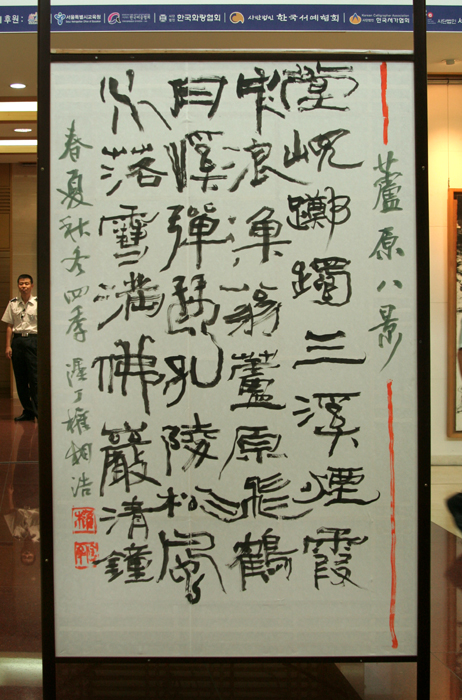 후원 : 서울특별시교육청 한국화랑협회 사단법인 한국서예협회 한국서가협회 사단법인
蘆原八景
堂峴躑躅三溪煙霞
中浪漁翁蘆原飛鶴
月溪彈琴孔陵松風
水落雪滿佛巖清鐘
春夏秋冬四季 塗丁權相浩